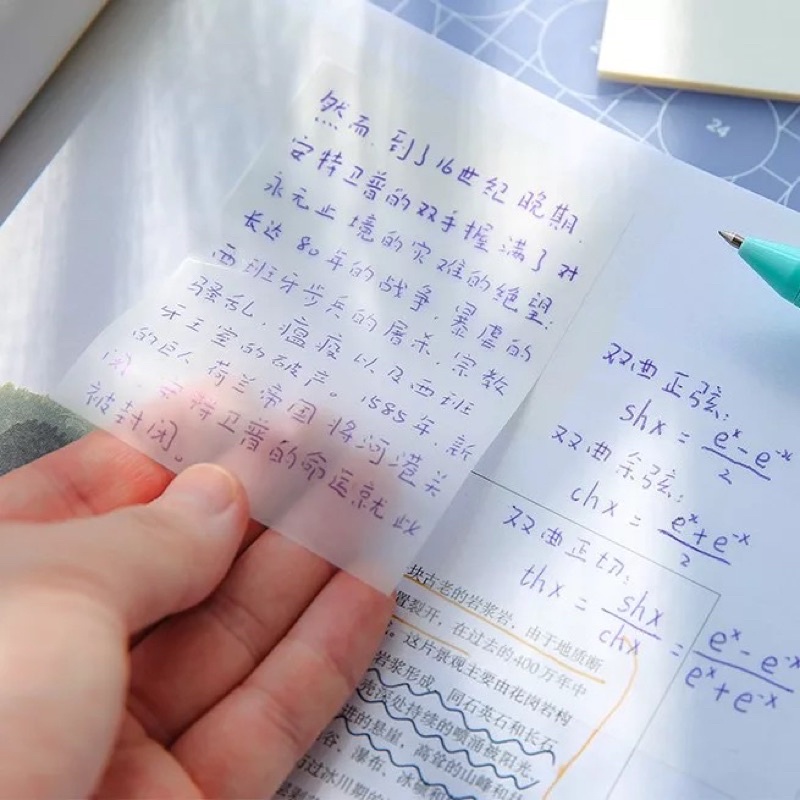 然而,到了16世纪晚期,
安特卫普的双手握满了对
永无止境的灾难的绝望:
长达80年的战争,暴虐的
西班牙步兵的屠杀,宗教
骚乱,瘟疫以及西班
牙王室的破产。1585年,新
的巨人荷兰帝国将河港关
安特卫普的命运就此
被封闭。
双曲正弦:
shx = (e^x - e^-x)/2
双曲余弦:
chx = (e^x + e^-x)/2
双曲正切:
thx = shx/chx = (e^x - e^-x)/(e^x + e^-x)
块古老的岩浆岩,由于地质断
置裂开,在过去的400万年中
。这片景观主要由花岗岩构
岩浆形成,同石英石和长石
壳深处持续的喷涌被阳光、
进的悬崖,高耸的山峰和
谷、瀑布、冰碛和
过冰川期的
24